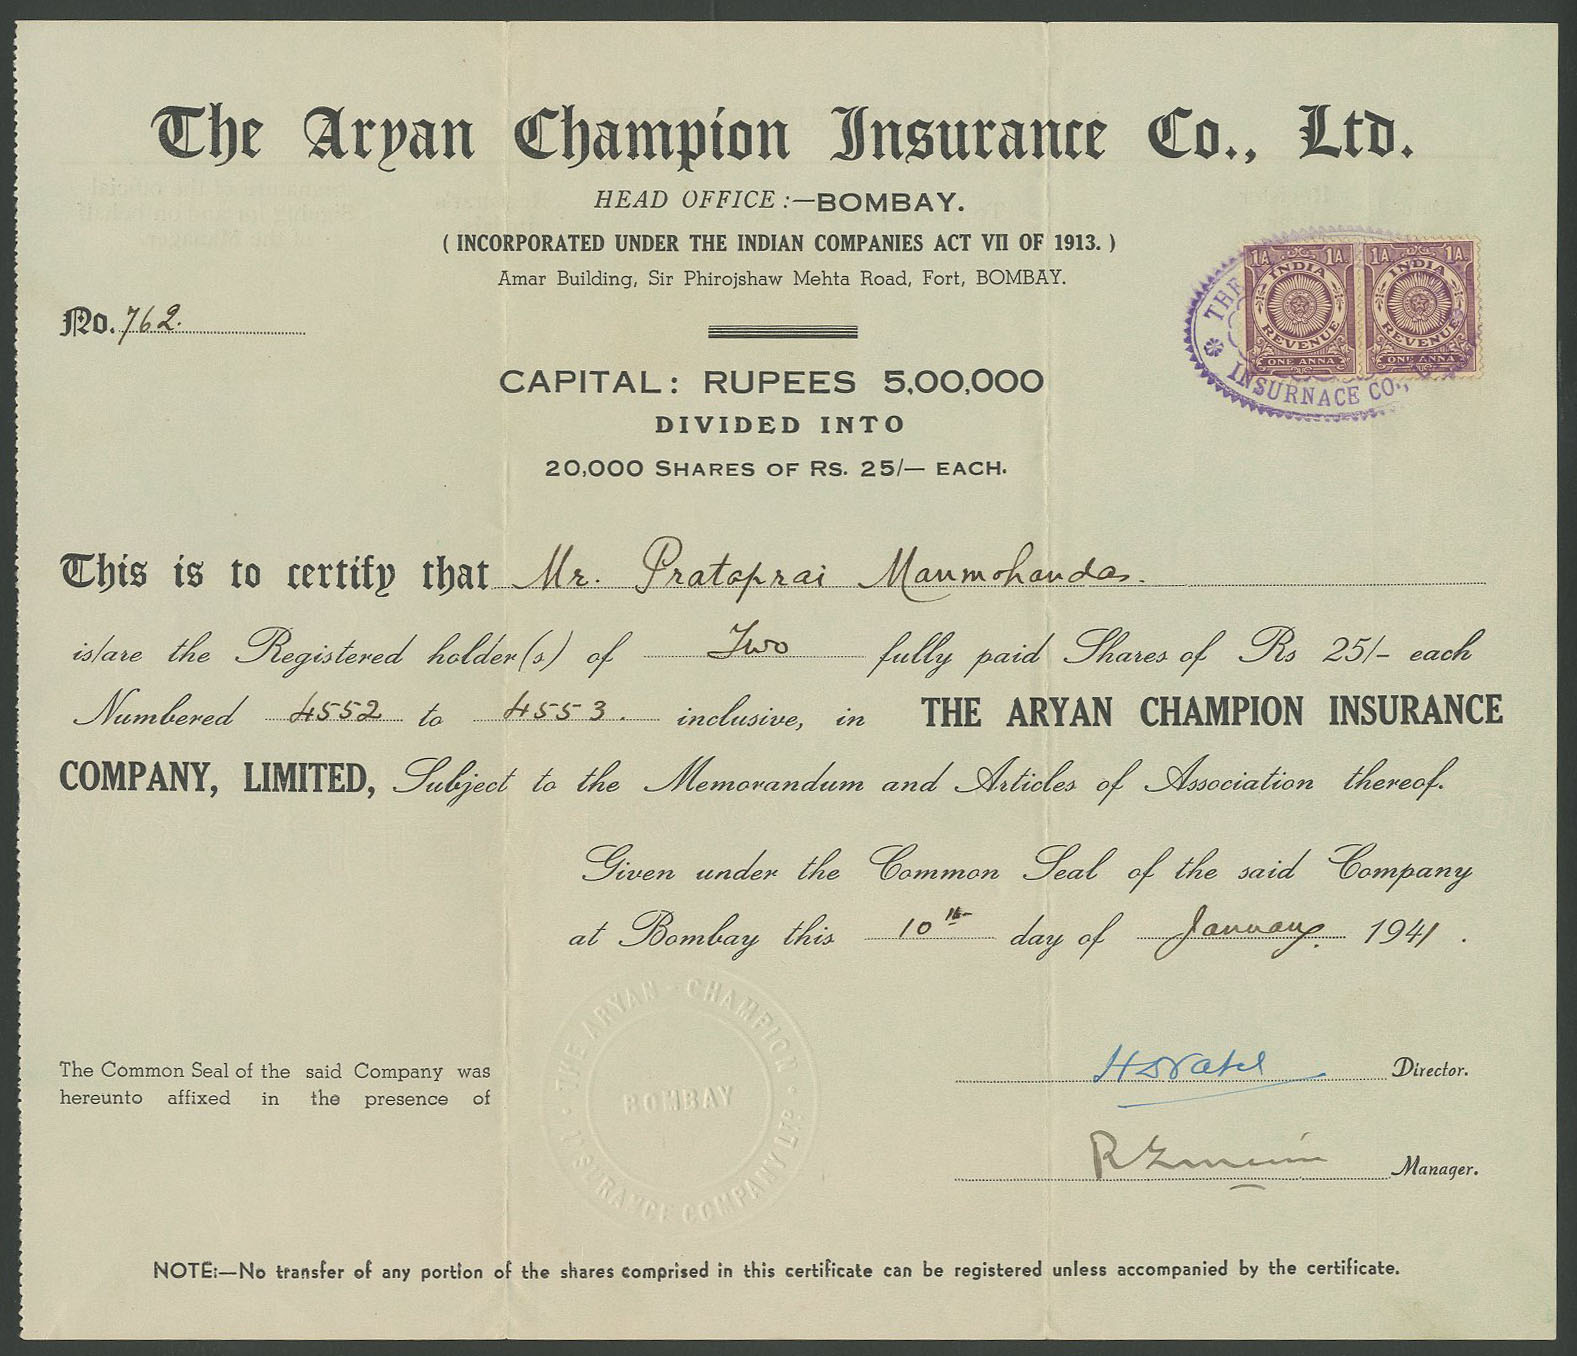 The Aryan Champion Insurance Co., Ltd.
HEAD OFFICE :—BOMBAY.
( INCORPORATED UNDER THE INDIAN COMPANIES ACT VII OF 1913. )
Amar Building, Sir Phirojshaw Mehta Road, Fort, BOMBAY.
No. 762.
1A. 1A. 1A. 1A.
INDIA INDIA
REVENUE REVENUE
ONE ANNA ONE ANNA
THE
INSURNACE CO.,
CAPITAL: RUPEES 5,00,000
DIVIDED INTO
20,000 SHARES OF RS. 25/— EACH.
This is to certify that Mr. Prataprai Manmohandas.
is/are the Registered holder(s) of Two fully paid Shares of Rs 25/- each
Numbered 4552 to 4553. inclusive, in THE ARYAN CHAMPION INSURANCE
COMPANY, LIMITED, Subject to the Memorandum and Articles of Association thereof.
Given under the Common Seal of the said Company
at Bombay this 10th day of January. 1941.
THE ARYAN - CHAMPION
BOMBAY
INSURANCE COMPANY LTD
The Common Seal of the said Company was
hereunto affixed in the presence of
Director.
Manager.
NOTE:—No transfer of any portion of the shares comprised in this certificate can be registered unless accompanied by the certificate.